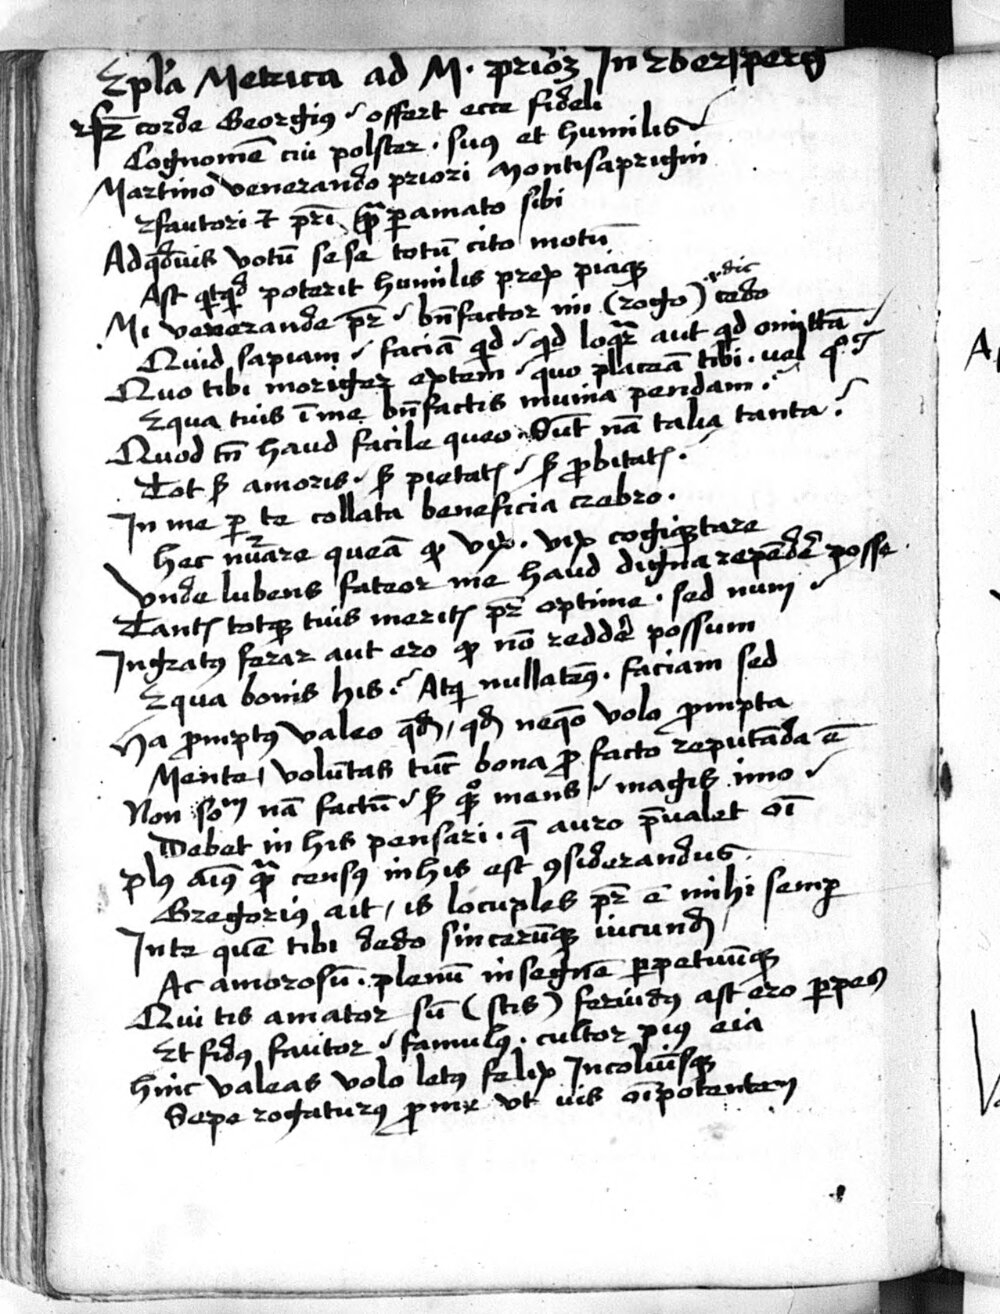 Epl'a Metrica ad M. priorē In Ebersperg
corde Georgius / offert ecce fideli
Cognomē cui polster . suus et humilis /
Martino venerando priori Montisaprigin
fautori et pri qm̄ peramato sibi
Ad quēvis votū sese totū cito motū
Ast qcqd poterit humilis prex piaqz
Mi venerande pr̄ / bn̄factor mi (rogo) cedo
dic
Quid sapiam / faciā qd / qd loqr aut qd omittā /
Quo tibi moriger extem / quo placeā tibi . vel
Equa tuis ī me bn̄factis munia pendam .
Quod tn̄ haud facile queo . Sūt nā talia tanta
Tot s amoris . s pietatis / s probitatis .
In me per te collata beneficia crebro .
Hec nūare queā qz vix . vix cogitare
Unde lubens fateor me haud digna repēdē posse .
Tantis totqz tuis meritis pr̄ optime . sed num /
Ingratus ferar aut ero qz nō reddē possum
Equa bonis his / Atqi nullatens . faciam sed
Ha promptus valeo qd, qd neqo volo prompta
Mente, voluntas tūc bona pro facto reputāda ē
Non som nā factū / s qqz mens / magis imo /
Debet in his pensari . q auro pvalet oī
plus aius qm̄ census in his est 9siderandus .
Gregorius ait, is locuples pr̄ ē mihi semp
In te quē tibi dedo sincerūqz iucundū
Ac amorosū . plenū insegnē perpetuūqz
Qui tis amator sū (scis) feruidus ast ero perpes
Et fidus fautor / famulus . cultor pius eia
Hinc valeas volo letus felix Incolumisqz
Sepe rogaturus pro me ut vis oīpotentem